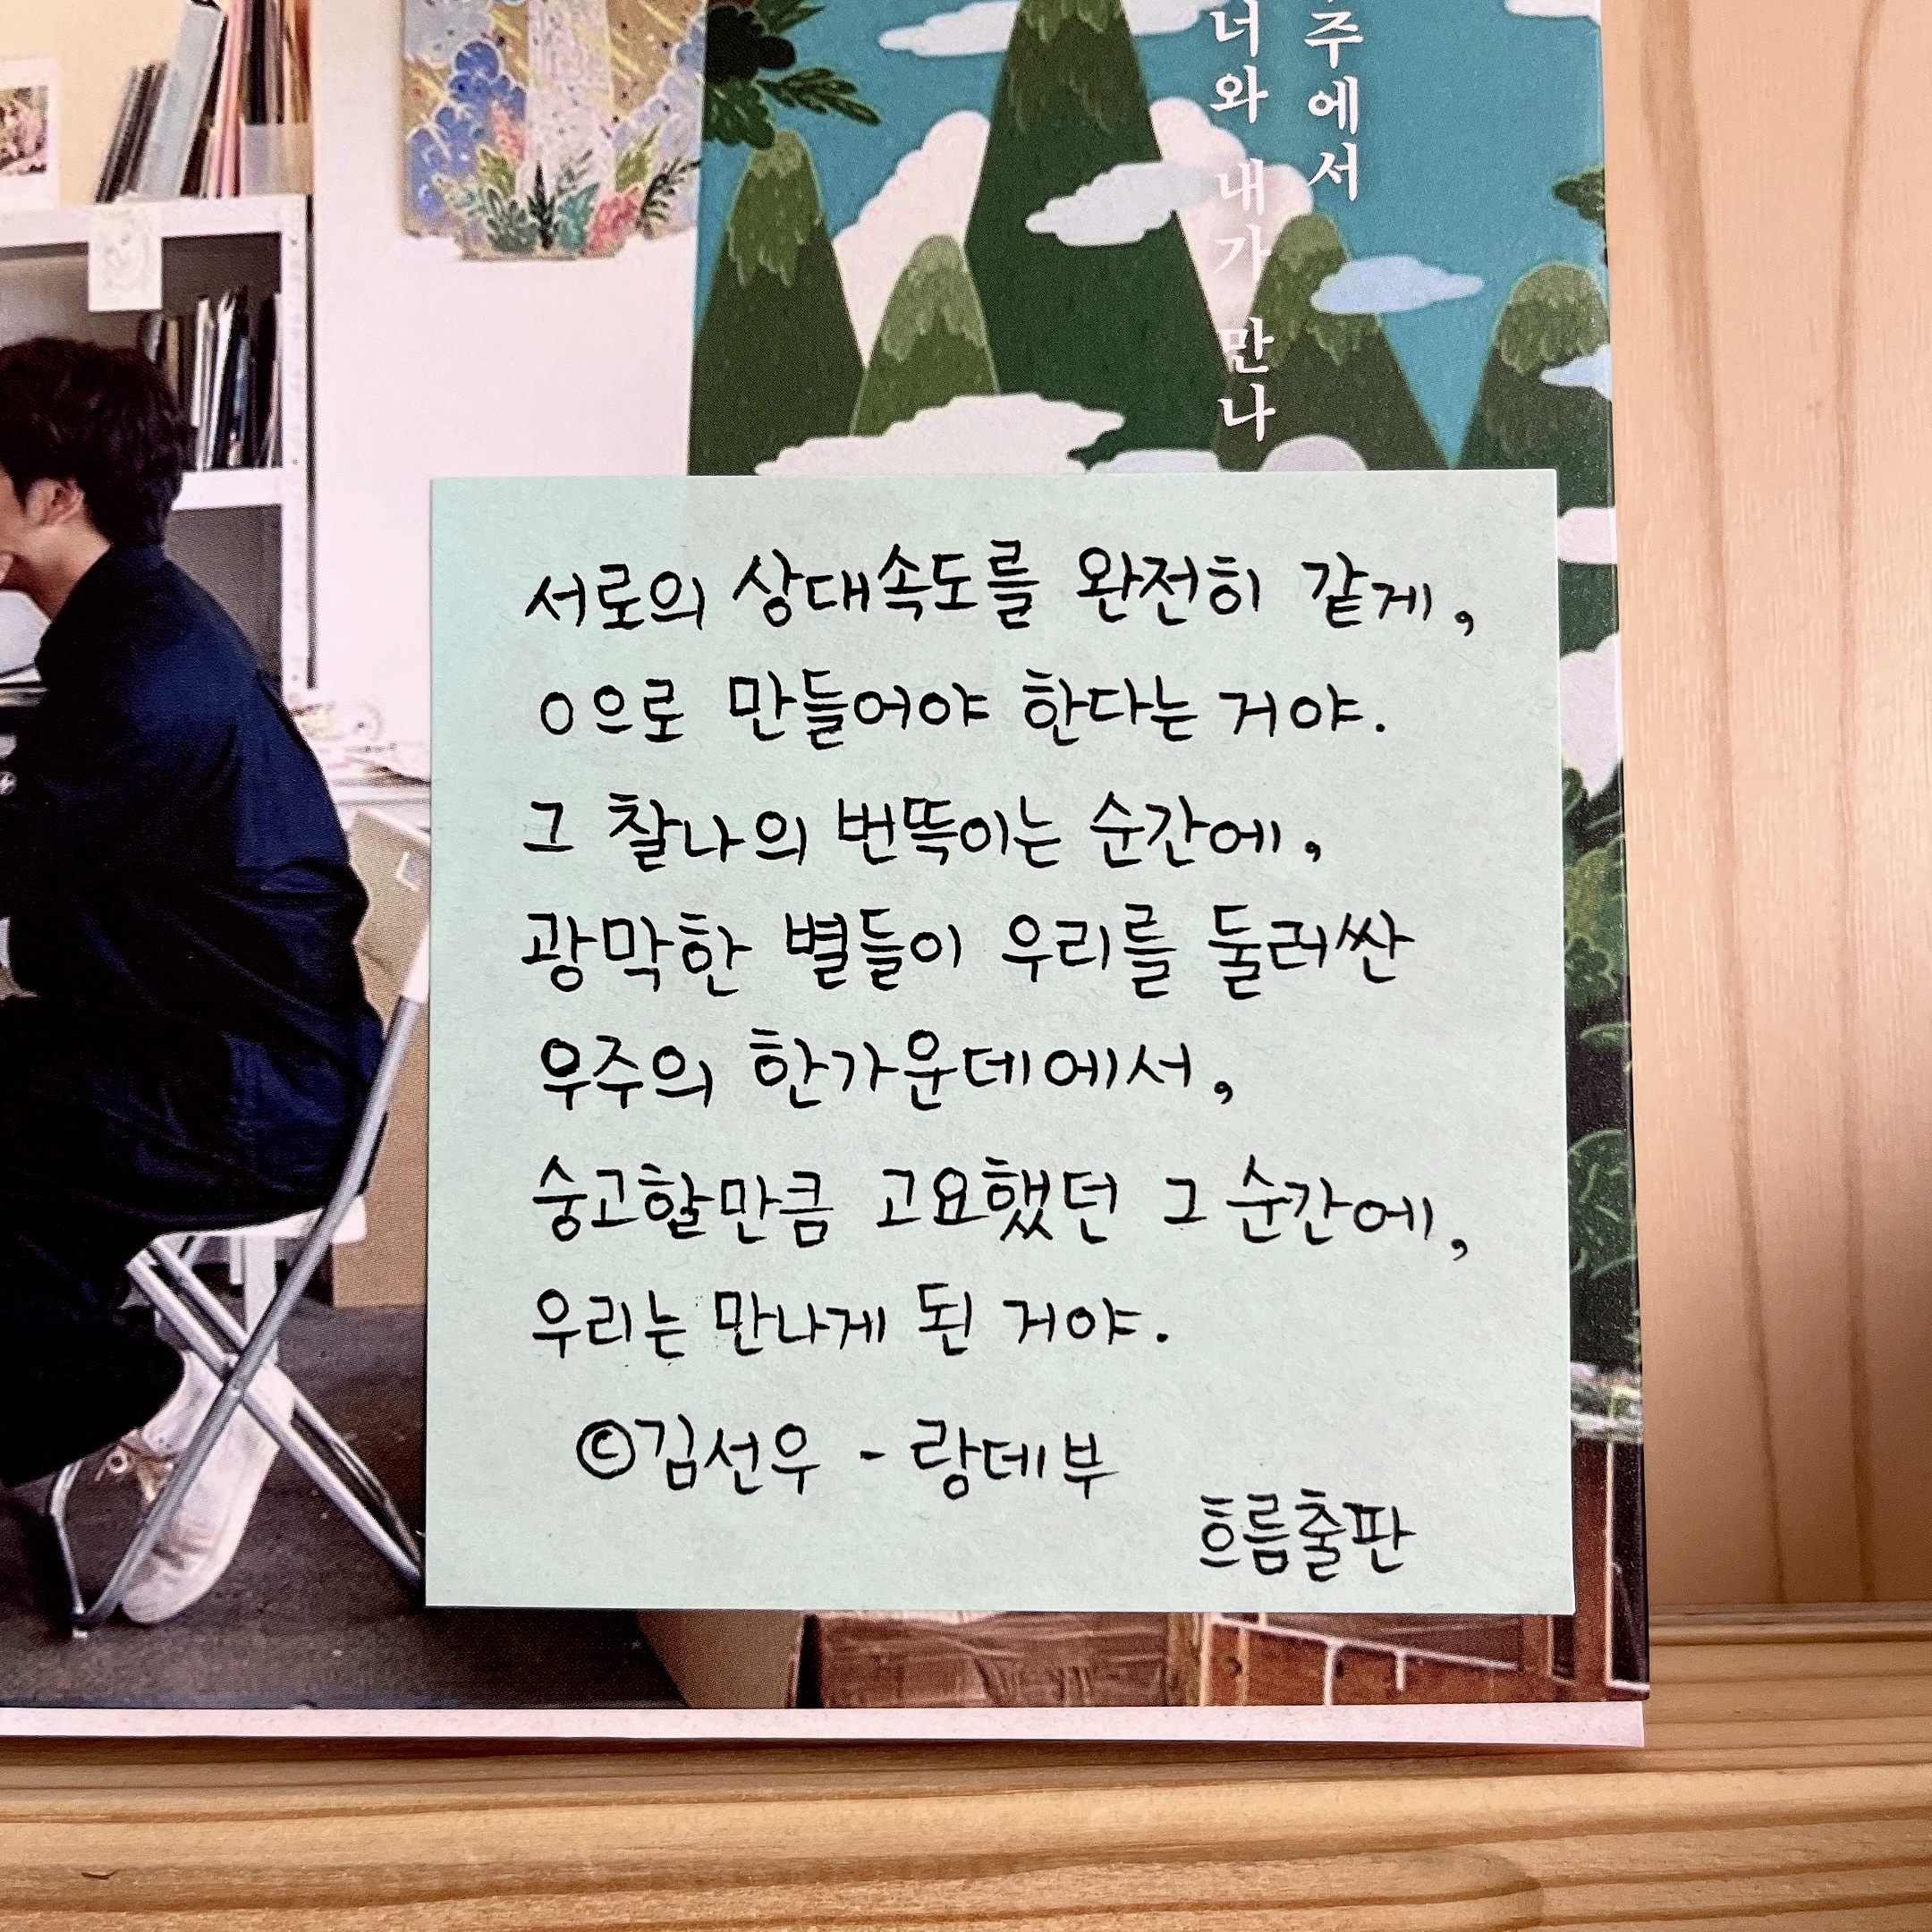 주에서
너와 내가 만나
서로의 상대속도를 완전히 같게,
0으로 만들어야 한다는 거야.
그 찰나의 번뜩이는 순간에,
광막한 별들이 우리를 둘러싼
우주의 한가운데에서,
숭고할만큼 고요했던 그 순간에,
우리는 만나게 된 거야.
©김선우 - 랑데부
흐름출판